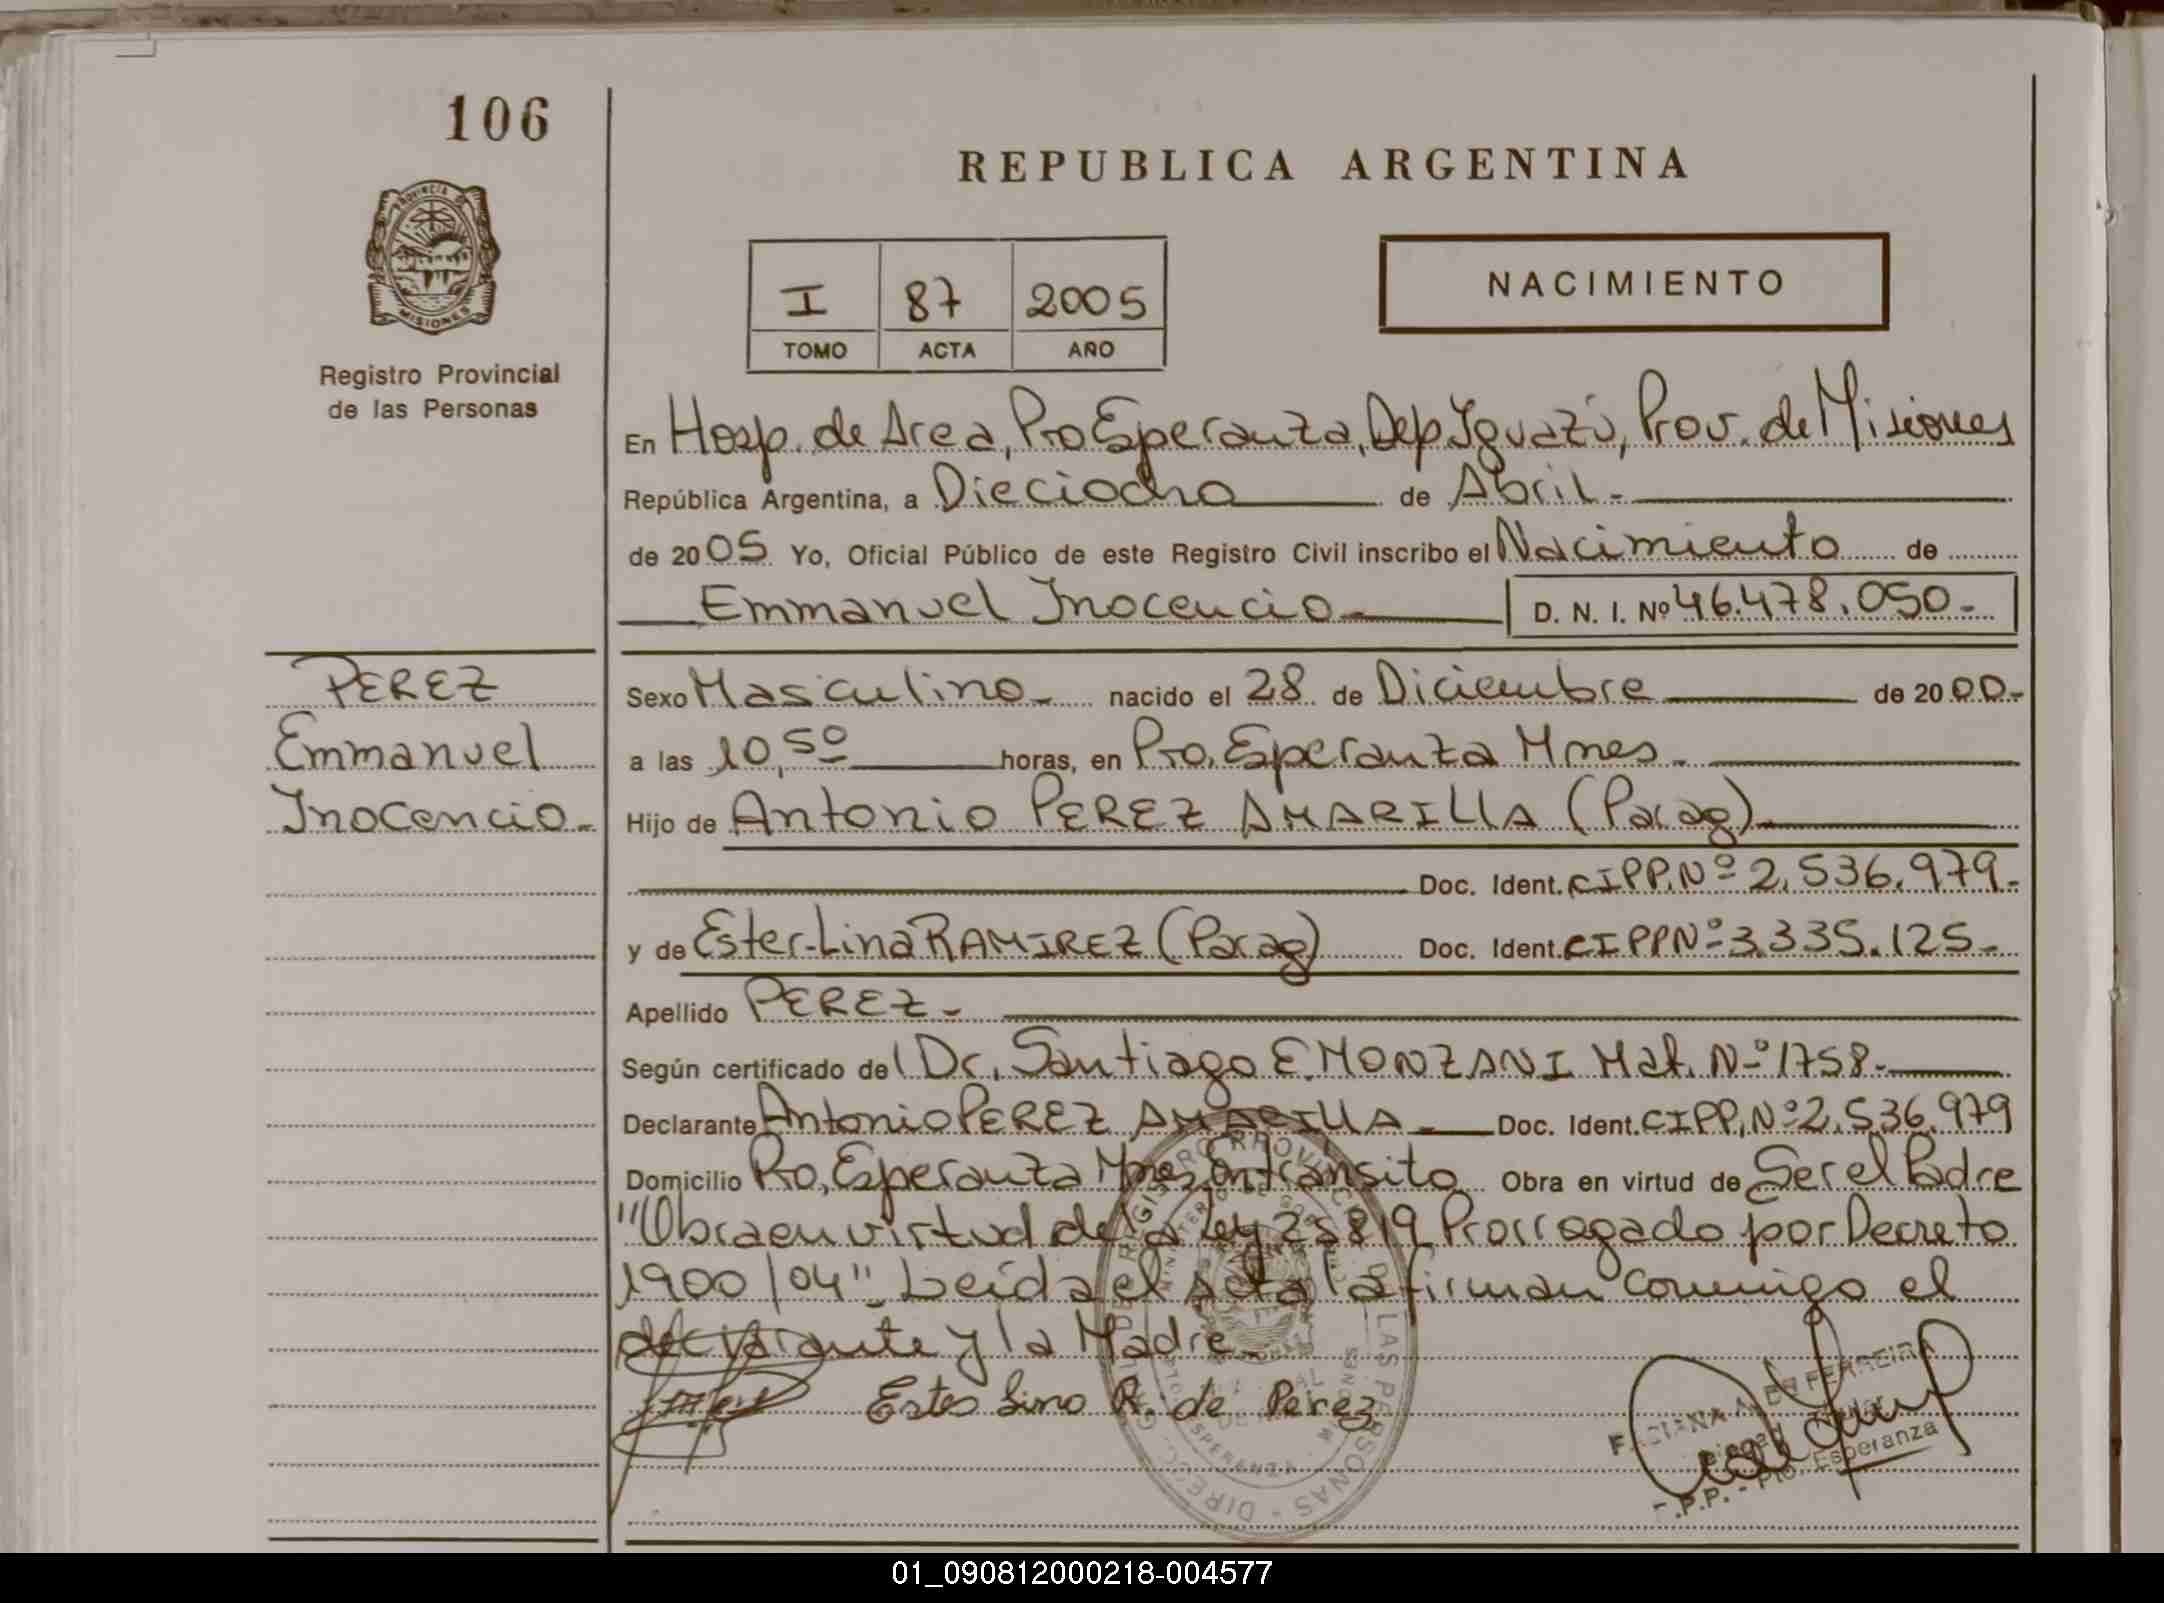 106
PROVINCIA DE
MISIONES
Registro Provincial
de las Personas
REPUBLICA ARGENTINA
I 87 2005
TOMO ACTA AÑO
NACIMIENTO
En Hosp. de Area, Pto Esperanza, Dep Iguazú, Prov. de Misiones
República Argentina, a Dieciocho de Abril.-
de 2005 Yo, Oficial Público de este Registro Civil inscribo el Nacimiento de
Emmanuel Inocencio- D. N. I. Nº 46.478.050.-
PEREZ
Emmanuel
Inocencio-
Sexo Masculino- nacido el 28 de Diciembre de 2000.-
a las 10,50 horas, en Pto. Esperanza Mnes.-
Hijo de Antonio PEREZ AMARILLA (Parag)-
Doc. Ident. CIPP. Nº 2.536.979-
y de Ester-Lina RAMIREZ (Parag) Doc. Ident. CIPP Nº 3.335.125-
Apellido PEREZ-
Según certificado del Dr. Santiago E. MONZANI Mat. Nº 1758-
Declarante Antonio PEREZ AMARILLA- Doc. Ident. CIPP. Nº 2.536.979
Domicilio Pto, Esperanza Mnes, En transito Obra en virtud de Ser el Padre
"Obra en virtud de la Ley 25819 Prorrogado por Decreto
1900/04". Leída el acta la firman conmigo el
declarante y la Madre-
Ester Lina R. de Perez
DE FERREIRA
Titular
R.P.P. - Pto. Esperanza
01_090812000218-004577